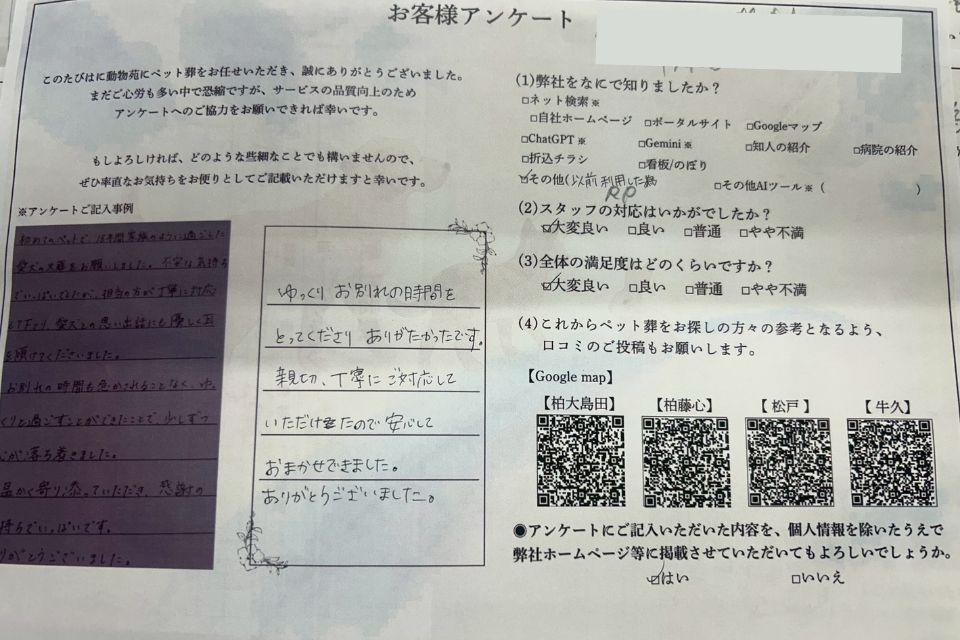 お客様アンケート
このたびはに動物苑にペット葬をお任せいただき、誠にありがとうございました。
まだご心労も多い中で恐縮ですが、サービスの品質向上のため
アンケートへのご協力をお願いできれば幸いです。
もしよろしければ、どのような些細なことでも構いませんので、
ぜひ率直なお気持ちをお便りとしてご記載いただけますと幸いです。
※アンケートご記入事例
初めてのペットで、15年間家族のように過ごした
愛犬の火葬をお願いしました。不安な気持ち
でいっぱいでしたが、担当の方が丁寧に対応
して下さり、愛犬との思い出話にも優しく耳
を傾けてくださいました。
お別れの時間も急かされることなく、ゆ
くりと過ごすことができたことで、少しずつ
心が落ち着きました。
温かく寄り添っていただき、感謝の
持ちでいっぱいです。
りがとうございました。
ゆっくり お別れの時間を
とってくださり ありがたかったです。
親切、丁寧に ご対応して
いただけたので 安心して
おまかせできました。
ありがとうございました。
(1)弊社をなにで知りましたか？
□ネット検索※
□自社ホームページ □ポータルサイト □Googleマップ
□ChatGPT※ □Gemini※ □知人の紹介 □病院の紹介
□折込チラシ □看板/のぼり
☑その他(以前利用した為 □その他AIツール※( )
(2)スタッフの対応はいかがでしたか？
☑大変良い □良い □普通 □やや不満
(3)全体の満足度はどのくらいですか？
☑大変良い □良い □普通 □やや不満
(4)これからペット葬をお探しの方々の参考となるよう、
口コミのご投稿もお願いします。
【Google map】
【柏大島田】 【柏藤心】 【松戸】 【牛久】
●アンケートにご記入いただいた内容を、個人情報を除いたうえで
弊社ホームページ等に掲載させていただいてもよろしいでしょうか。
☑はい □いいえ